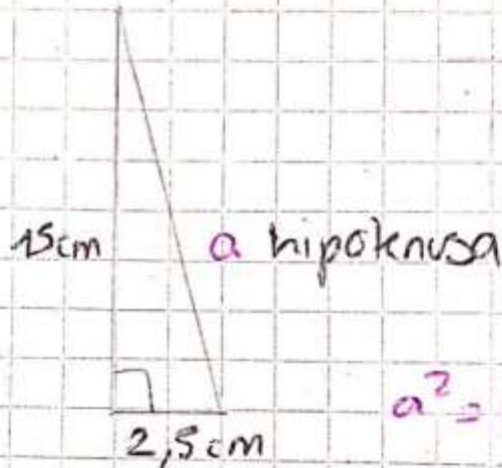 15cm
a hipotenusa
a² =
2,5cm